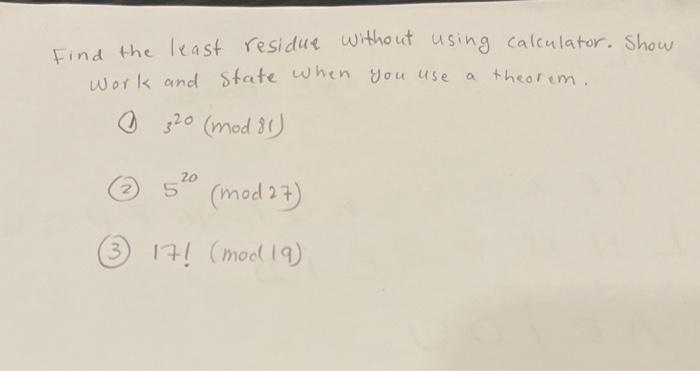 Find the least residue without using calculator. Show
work and state when you use a theorem.
① 3²⁰ (mod 81)
② 5²⁰ (mod 27)
③ 17! (mod 19)